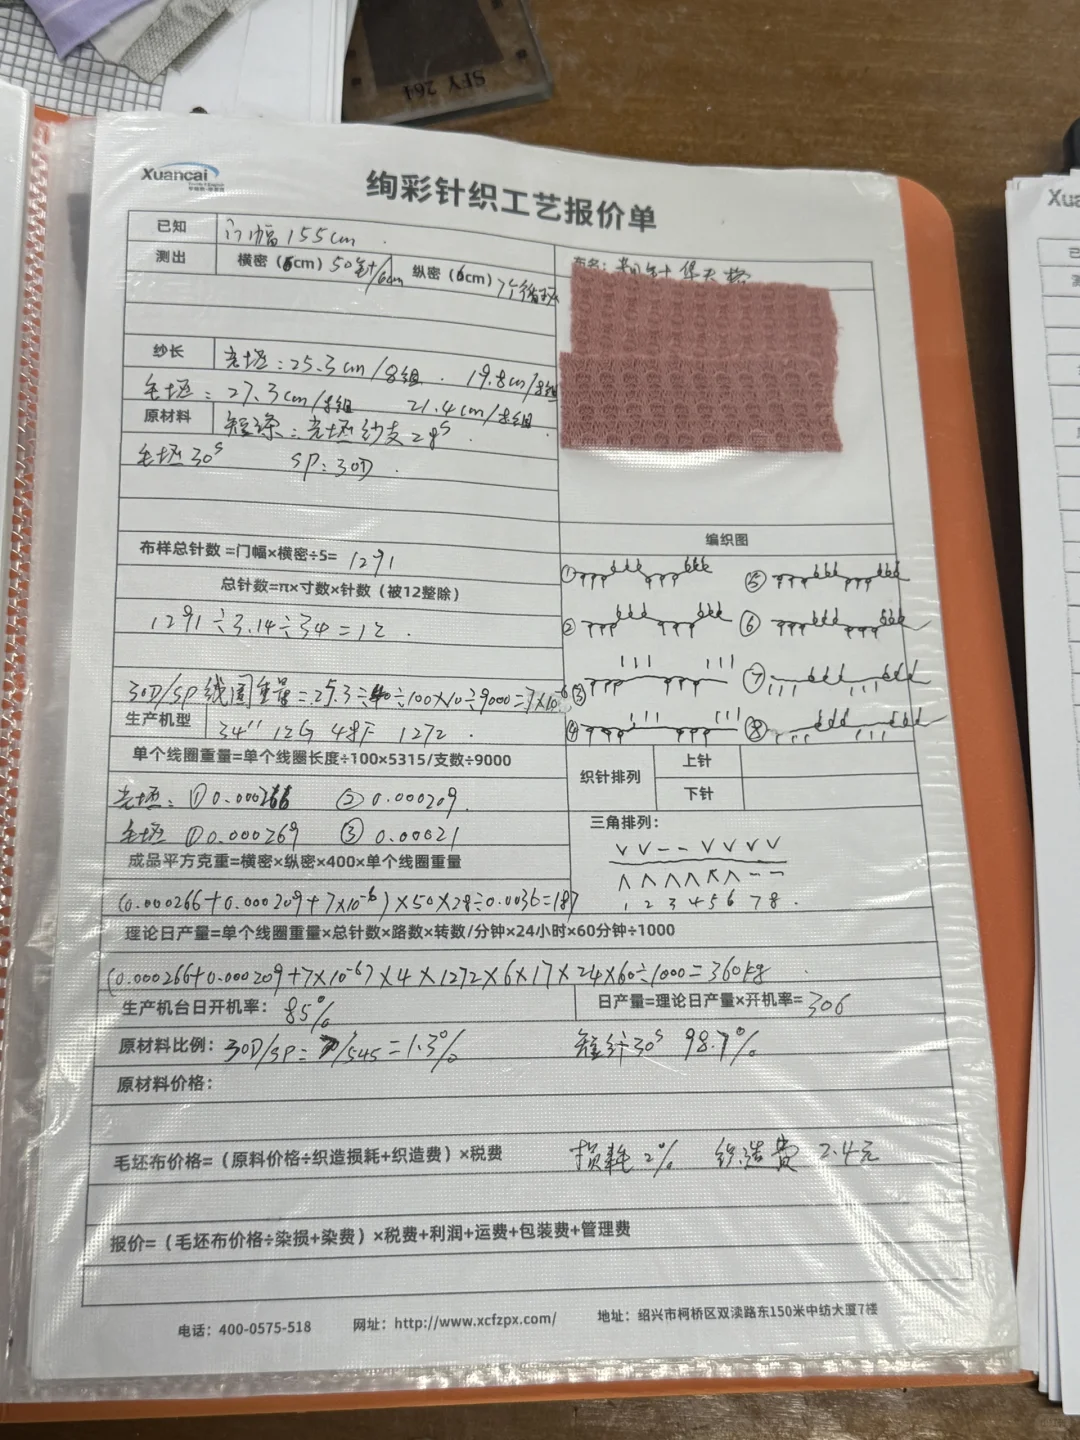 SFY 261
Xuancai
绚彩针织工艺报价单
已知 门幅 155cm
测出 横密（6cm）50针/6cm 纵密（6cm）7个循环
布名：粗针华夫格
纱长 光坯：25.3cm/8组 . 19.8cm/8组
毛坯：27.3cm/8组 21.4cm/8组 .
原材料 短涤：光坯纱支28S .
毛坯30S SP：30D .
布样总针数=门幅×横密÷5= 1291
总针数=π×寸数×针数（被12整除）
1291÷3.14÷34=12 .
30D/SP线圈重量=25.3÷40÷100×10÷9000=7×10-6
生产机型 34" 12G 48F 1272 .
单个线圈重量=单个线圈长度÷100×5315/支数÷9000
光坯：①0.000266 ②0.000209.
毛坯 ①0.000269 ③0.00021
成品平方克重=横密×纵密×400×单个线圈重量
(0.000266+0.000209+7×10-6)×50×28÷0.0036=187
编织图
① ⑤
② ⑥
③ ⑦
④ ⑧
织针排列 上针
下针
三角排列：
V V - - V V V V
Λ Λ Λ Λ Λ Λ - -
1 2 3 4 5 6 7 8 .
理论日产量=单个线圈重量×总针数×路数×转数/分钟×24小时×60分钟÷1000
(0.000266+0.000209+7×10-6)×4×1272×6×17×24×60÷1000=360kg
生产机台日开机率： 85% 日产量=理论日产量×开机率= 306
原材料比例：30D/SP=7/545=1.3% 短纤30S 98.7%
原材料价格：
毛坯布价格=（原料价格÷织造损耗+织造费）×税费 损耗2% 织造费 2.4元
报价=（毛坯布价格÷染损+染费）×税费+利润+运费+包装费+管理费
电话：400-0575-518 网址：http://www.xcfzpx.com/ 地址：绍兴市柯桥区双渎路东150米中纺大厦7楼